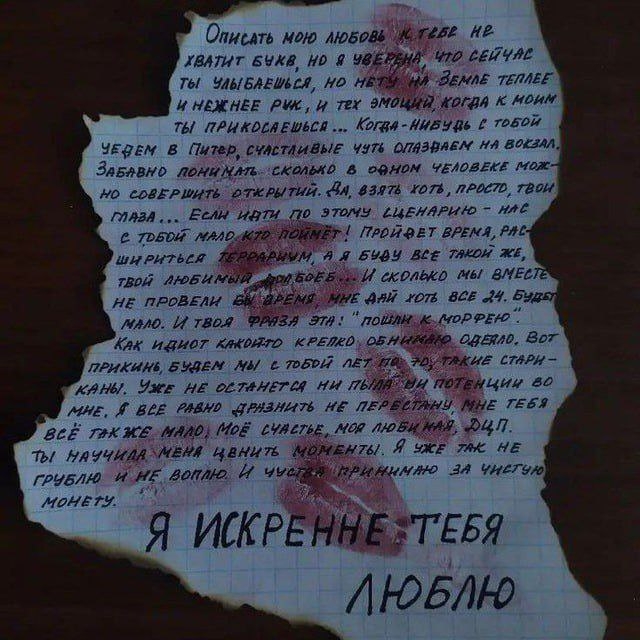 Описать мою любовь к тебе не
хватит букв, но я уверена, что сейчас
ты улыбаешься, но нету на Земле теплее
и нежнее рук, и тех эмоций, когда к моим
ты прикосаешься... Когда-нибудь с тобой
уедем в Питер, счастливые чуть опаздаем на вокзал.
Забавно понимать сколько в одном человеке мож-
но совершить открытий. Да, взять хоть, просто, твои
глаза... Если идти по этому сценарию - нас
с тобой мало кто поймёт! Пройдет время, рас-
шириться террариум, а я буду все такой же,
твой любимый долбоеб... И сколько мы вместе
не провели бы время, мне дай хоть все 24. Будет
мало. И твоя фраза эта: "пошли к Морфею".
Как идиот какойто крепко обнимаю одеяло. Вот
прикинь, будем мы с тобой лет по 70, такие стари-
каны. Уже не останется ни пыла ни потенции во
мне. Я все равно дразнить не перестану мне тебя
всё так же мало, Моё счастье, моя любимая ДЦП.
Ты научила меня ценить моменты. Я уже так не
грублю и не воплю. И чуства принимаю за чистую
монету.
Я ИСКРЕННЕ ТЕБЯ
ЛЮБЛЮ